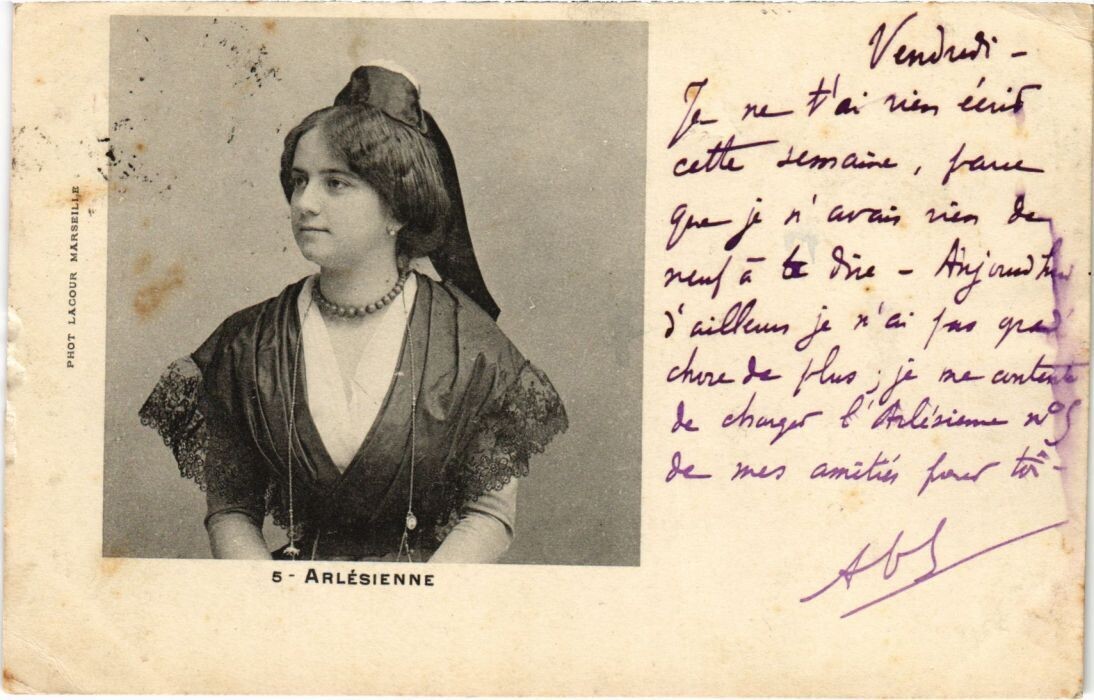 PHOT LACOUR MARSEILLE
5 - ARLÉSIENNE
Vendredi -
Je ne t'ai rien écrit
cette semaine, parce
que je n'avais rien de
neuf à te dire - Aujourd'hui
d'ailleurs je n'ai pas grand
chose de plus ; je me contente
de charger l'Arlésienne n° 5
de mes amitiés pour toi -